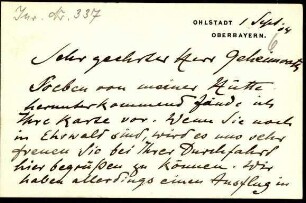 Inv. Nr. 337
OHLSTADT 1 Sept. 04
OBERBAYERN.
Sehr geehrter Herr Geheimrat
Soeben von meiner Hütte
herunterkommend fände ich
Ihre Karte vor. Wenn Sie noch
in Ehrwald sind, wird es uns sehr
freuen Sie bei Ihrer Durchfahrt
hier begrüßen zu können. Wir
haben allerdings einen Ausflug in